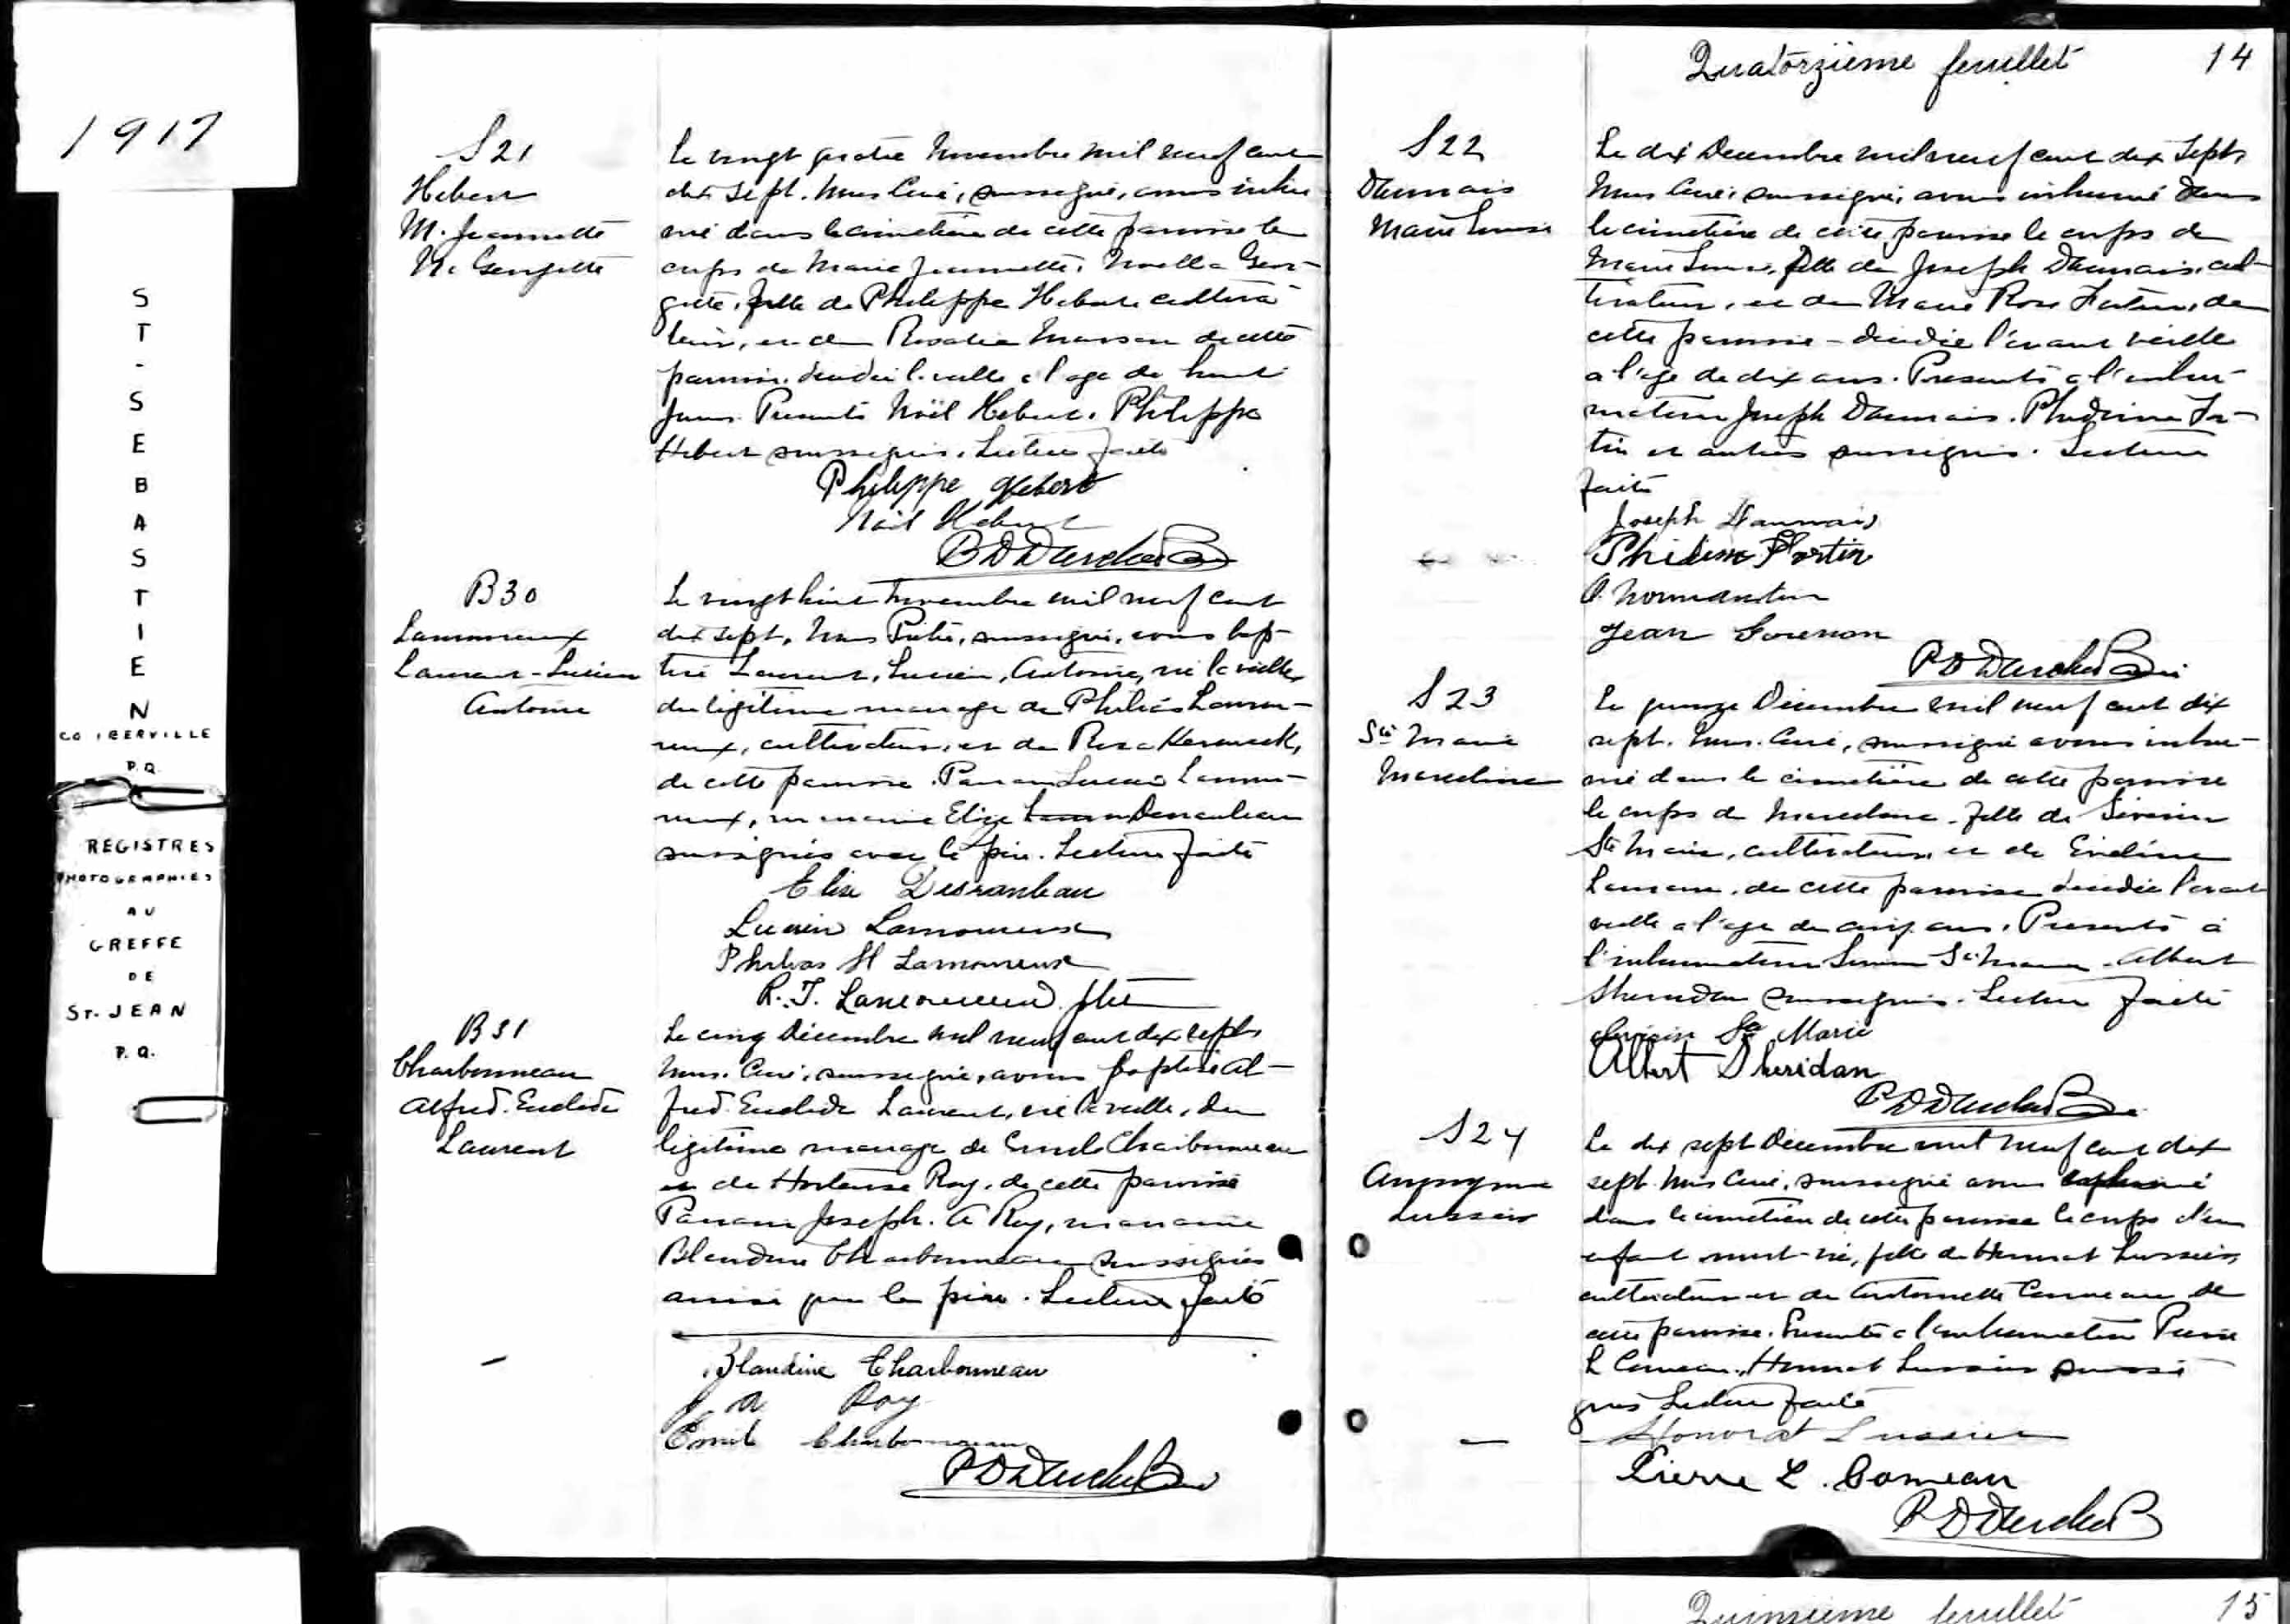 1917
ST-SEBASTIEN
CO IBERVILLE
P.Q.
REGISTRES
PHOTOGRAPHIES
AU
GREFFE
DE
ST. JEAN
P.Q.
S21
Hebert
M. Jeannette
N. Georgette
Le vingt quatre Novembre mil neuf cent
dix sept. Nous Curé, soussigné, avons inhu-
mé dans le cimetière de cette paroisse le
corps de Marie Jeannette, Noella Geor-
gette, fille de Philippe Hebert cultiva-
teur, et de Rosalie de cette
paroisse, décédée la veille à l'age de huit
jours. Presents Noël Hebert, Philippe
Hebert soussignés. Lecture faite
Philippe Hebert
Noël Hebert
B30
Lamoureux
Laurent-Lucien
Antoine
Le vingt huit Novembre mil neuf cent
dix sept, Nous Prêtre, soussigné, avons bap-
tisé Laurent, Lucien, Antoine, né la veille,
du légitime mariage de Philias Lamou-
reux, cultivateur, et de Rosa
de cette paroisse. Parrain Lucien Lamou-
reux, marraine Elize Desranleau
soussignés avec le père. Lecture faite
Elise Desranleau
Lucien Lamoureux
Philias H Lamoureux
R. T. Lamoureux ptre
B31
Charbonneau
Alfred. Euclide
Laurent
Le cinq Décembre mil neuf cent dix sept,
Nous. Curé, soussigné, avons baptisé Al-
fred. Euclide Laurent, né la veille, du
légitime mariage de Emile Charbonneau
et de Hortense Roy, de cette paroisse
Parrain Joseph. A Roy, marraine
Blandine Charbonneau soussignés
ainsi que le père. Lecture faite
Blandine Charbonneau
J. A Roy
Emile Charbonneau
Quatorzième feuillet 14
S22
Daunais
Marie Louise
Le dix Decembre mil neuf cent dix sept,
Nous Curé, soussigné, avons inhumé dans
le cimetière de cette paroisse le corps de
Marie Louise, fille de Joseph Daunais, cul-
tivateur, et de Marie Rose Fortin, de
cette paroisse - décédée l'avant veille
a l'age de dix ans. Presents a l'inhu-
mation Joseph Daunais. For-
tin et autres soussignés. Lecture
faite
Joseph Daunais
Fortin
Jean
S23
Ste Marie
Marceline
Le quinze Décembre mil neuf cent dix
sept. Nous. Curé, soussigné avons inhu-
mé dans le cimetière de cette paroisse
le corps de Marceline. fille de Sévérin
Ste Marie, cultivateur et de Eveline
de cette paroisse décédée l'avant
veille a l'age de cinq ans. Presents à
l'inhumation Ste Marie. Albert
Sheridan soussignés. Lecture faite
Ste Marie
Albert Sheridan
S24
Anonyme
Lussier
Le dix sept Decembre mil neuf cent dix
sept. Nous Curé, soussigné avons
dans le cimetière de cette paroisse le corps d'un
enfant mort-né, fille de Honorat Lussier,
cultivateur et de Antoinette Comeau de
cette paroisse. Presents a l'inhumation Pierre
L Comeau, Honorat Lussier soussi-
gnés Lecture faite
Honorat Lussier
Pierre L. Comeau
Quinzieme feuillet 15